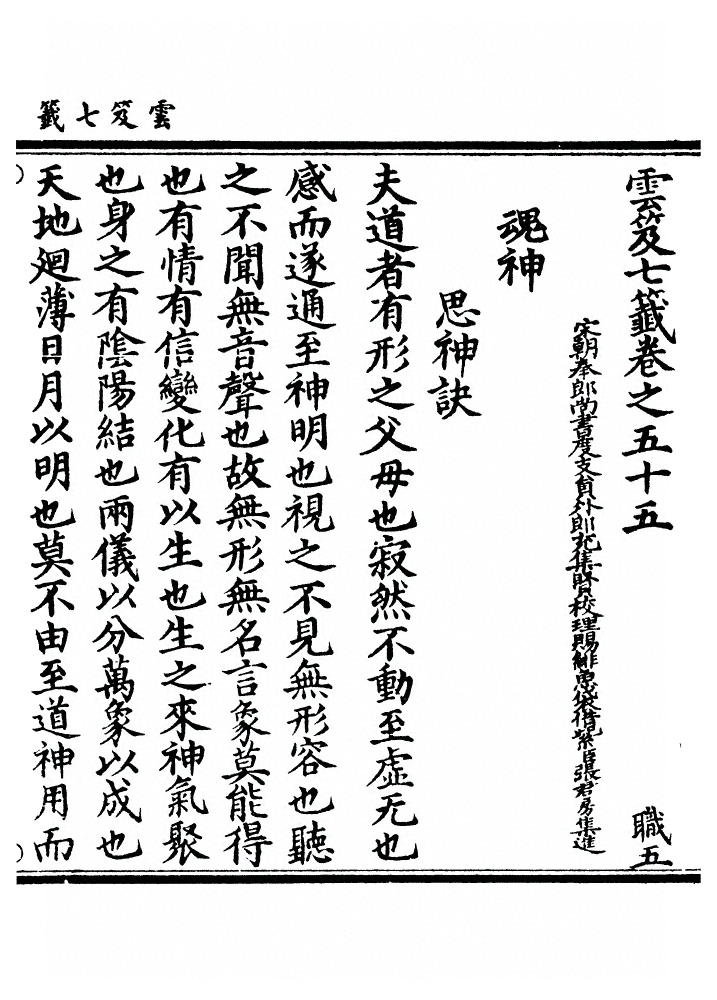 雲笈七籤
雲笈七籤卷之五十五 職五
宋朝奉郎尚書度支員外郎充集賢校理賜緋魚袋借紫臣張君房集進
魂神
思神訣
夫道者有形之父母也寂然不動至虛无也
感而遂通至神明也視之不見無形容也聽
之不聞無音聲也故無形無名言象莫能得
也有情有信變化有以生也生之來神氣聚
也身之有陰陽結也兩儀以分萬象以成也
天地廻薄日月以明也莫不由至道神用而